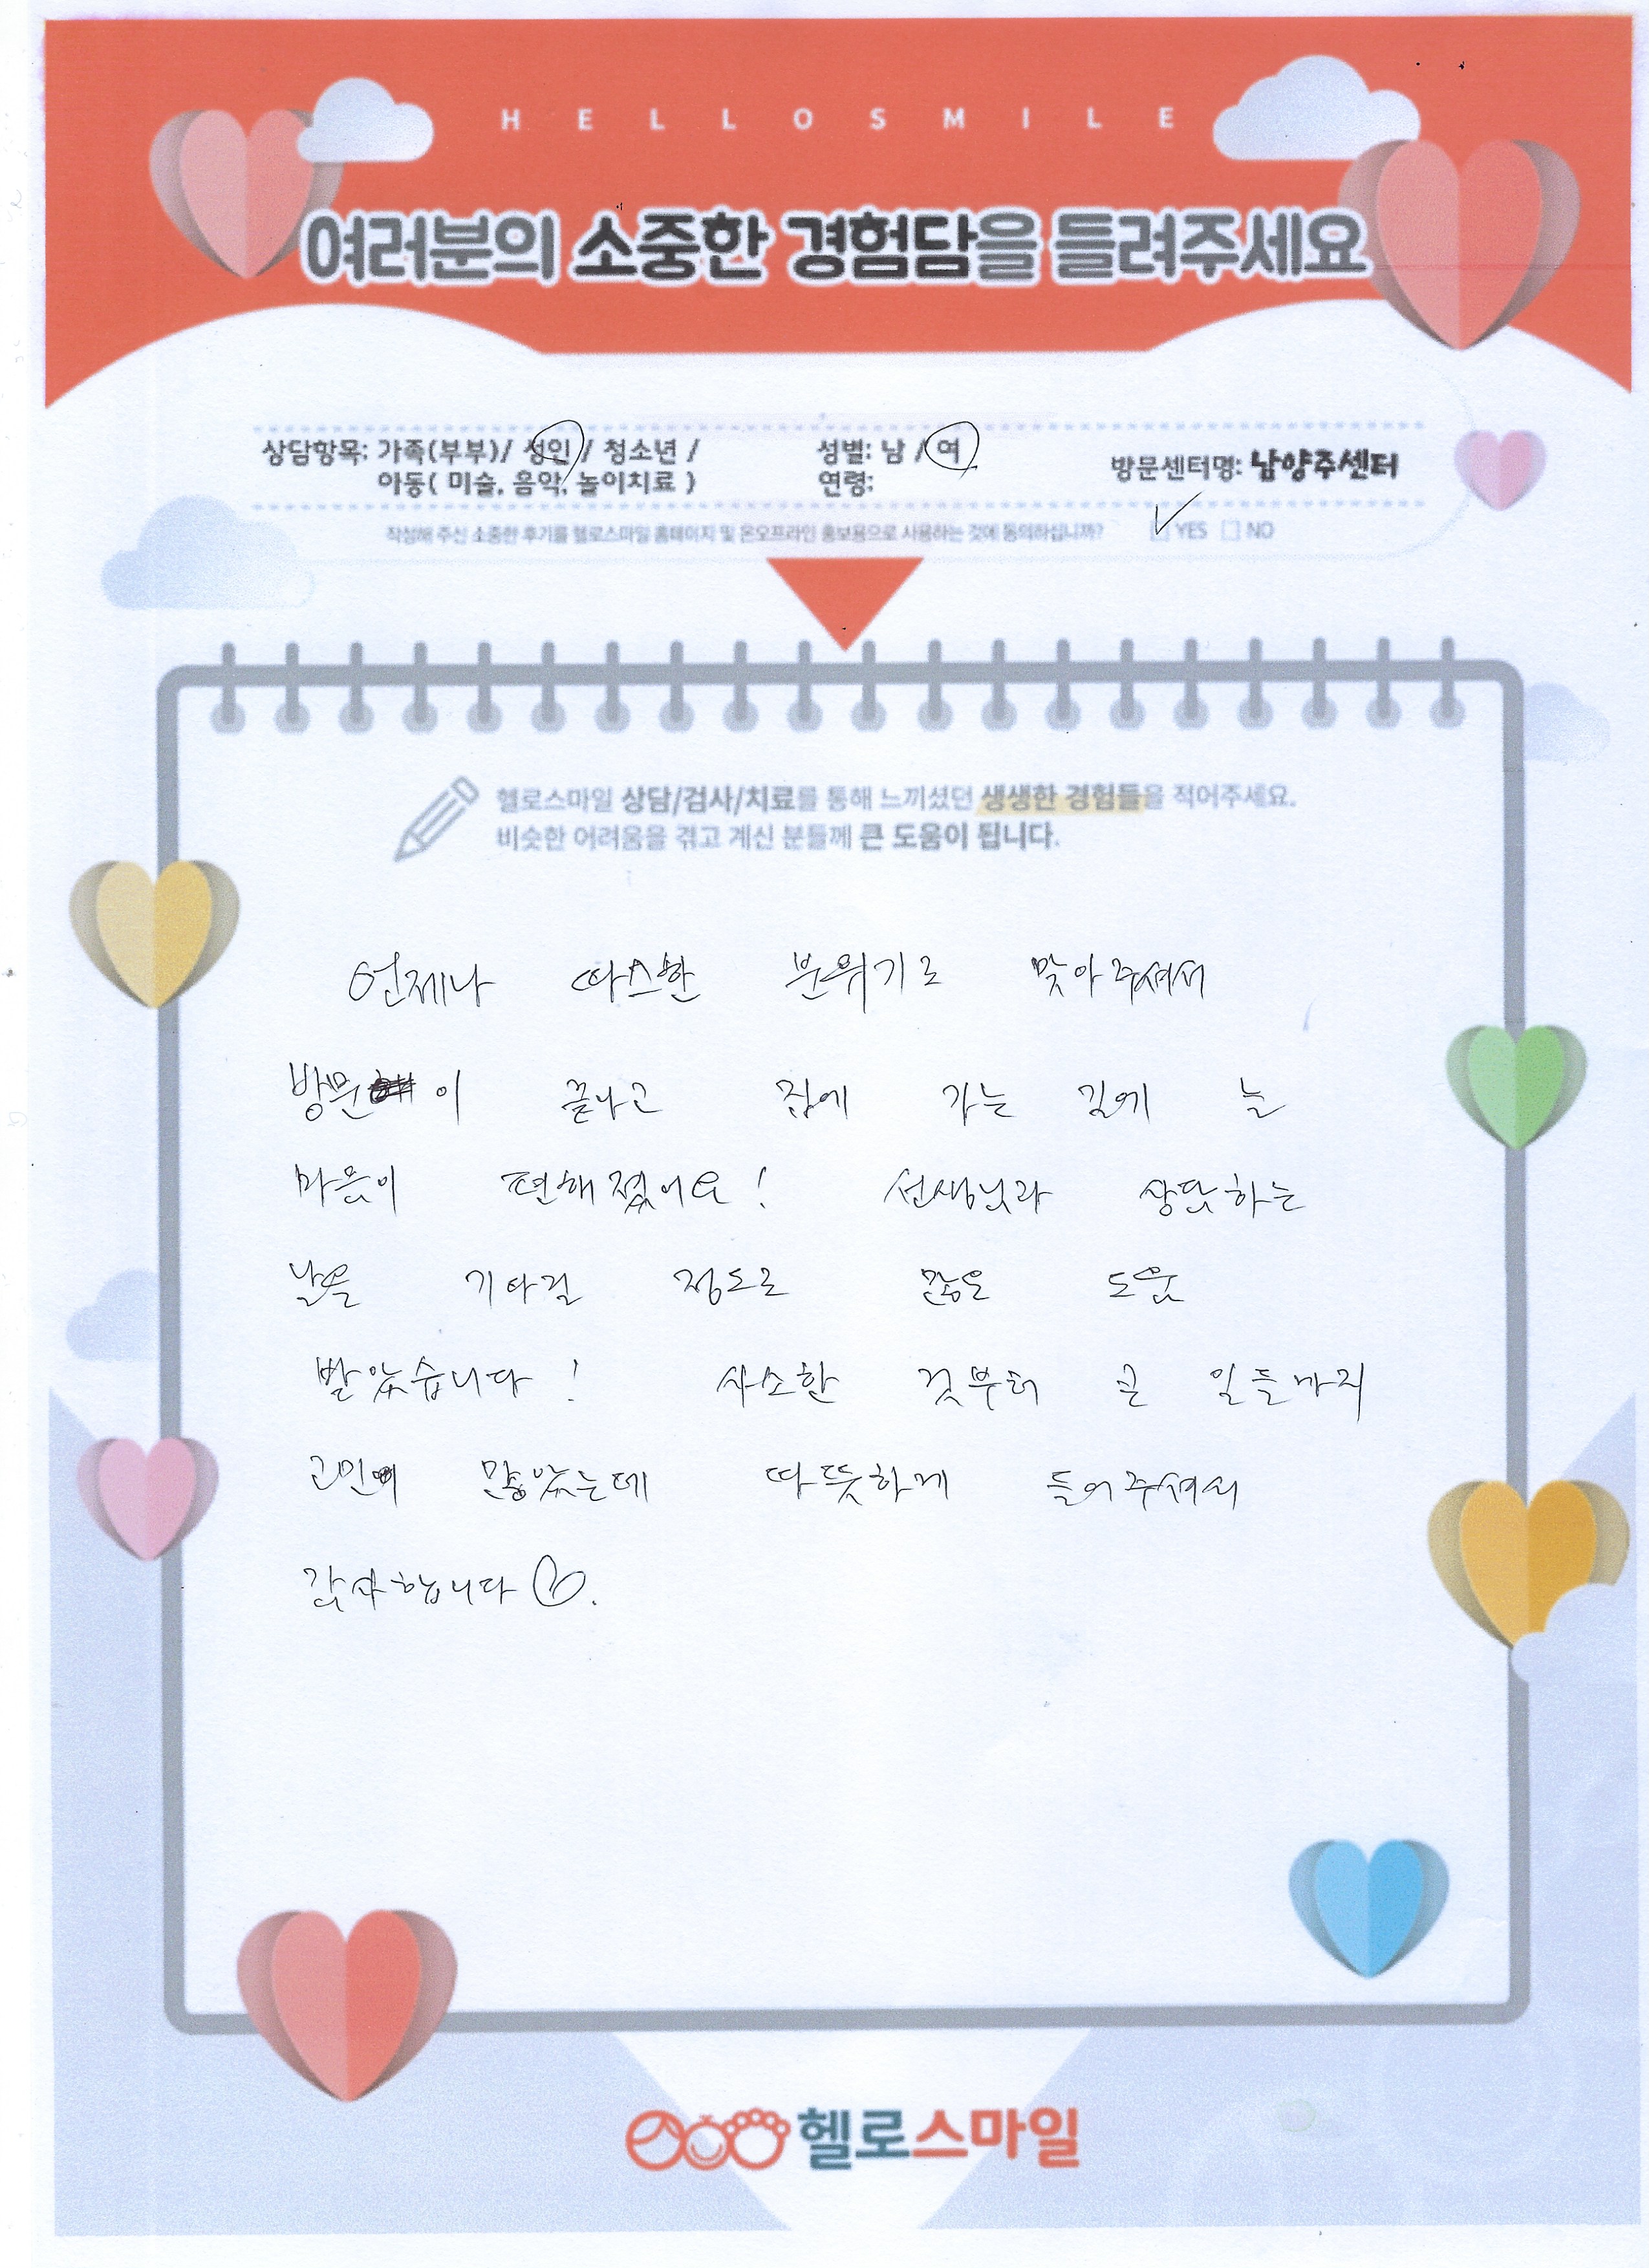 HELLOSMILE
여러분의 소중한 경험담을 들려주세요
상담항목: 가족(부부)/ 성인 / 청소년 /
아동( 미술, 음악, 놀이치료 )
성별: 남 / 여
연령:
방문센터명: 남양주센터
작성해 주신 소중한 후기를 헬로스마일 홈페이지 및 온오프라인 홍보용으로 사용하는 것에 동의하십니까? YES NO
헬로스마일 상담/검사/치료를 통해 느끼셨던 생생한 경험들을 적어주세요.
비슷한 어려움을 겪고 계신 분들께 큰 도움이 됩니다.
언제나 따스한 분위기로 맞아주셔서
방문이 끝나고 집에 가는 길에 늘
마음이 편해졌어요! 선생님과 상담하는
날을 기다릴 정도로 많은 도움
받았습니다! 사소한 것부터 큰 일들까지
고민이 많았는데 따뜻하게 들어주셔서
감사합니다.
헬로스마일